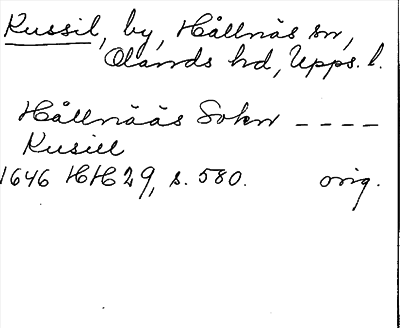 Russil, by, Hållnäs sn,
Olands hd, Upps. l.
Hållnääs Sokn ----
Rusill
1646 HH29, s. 580. orig.